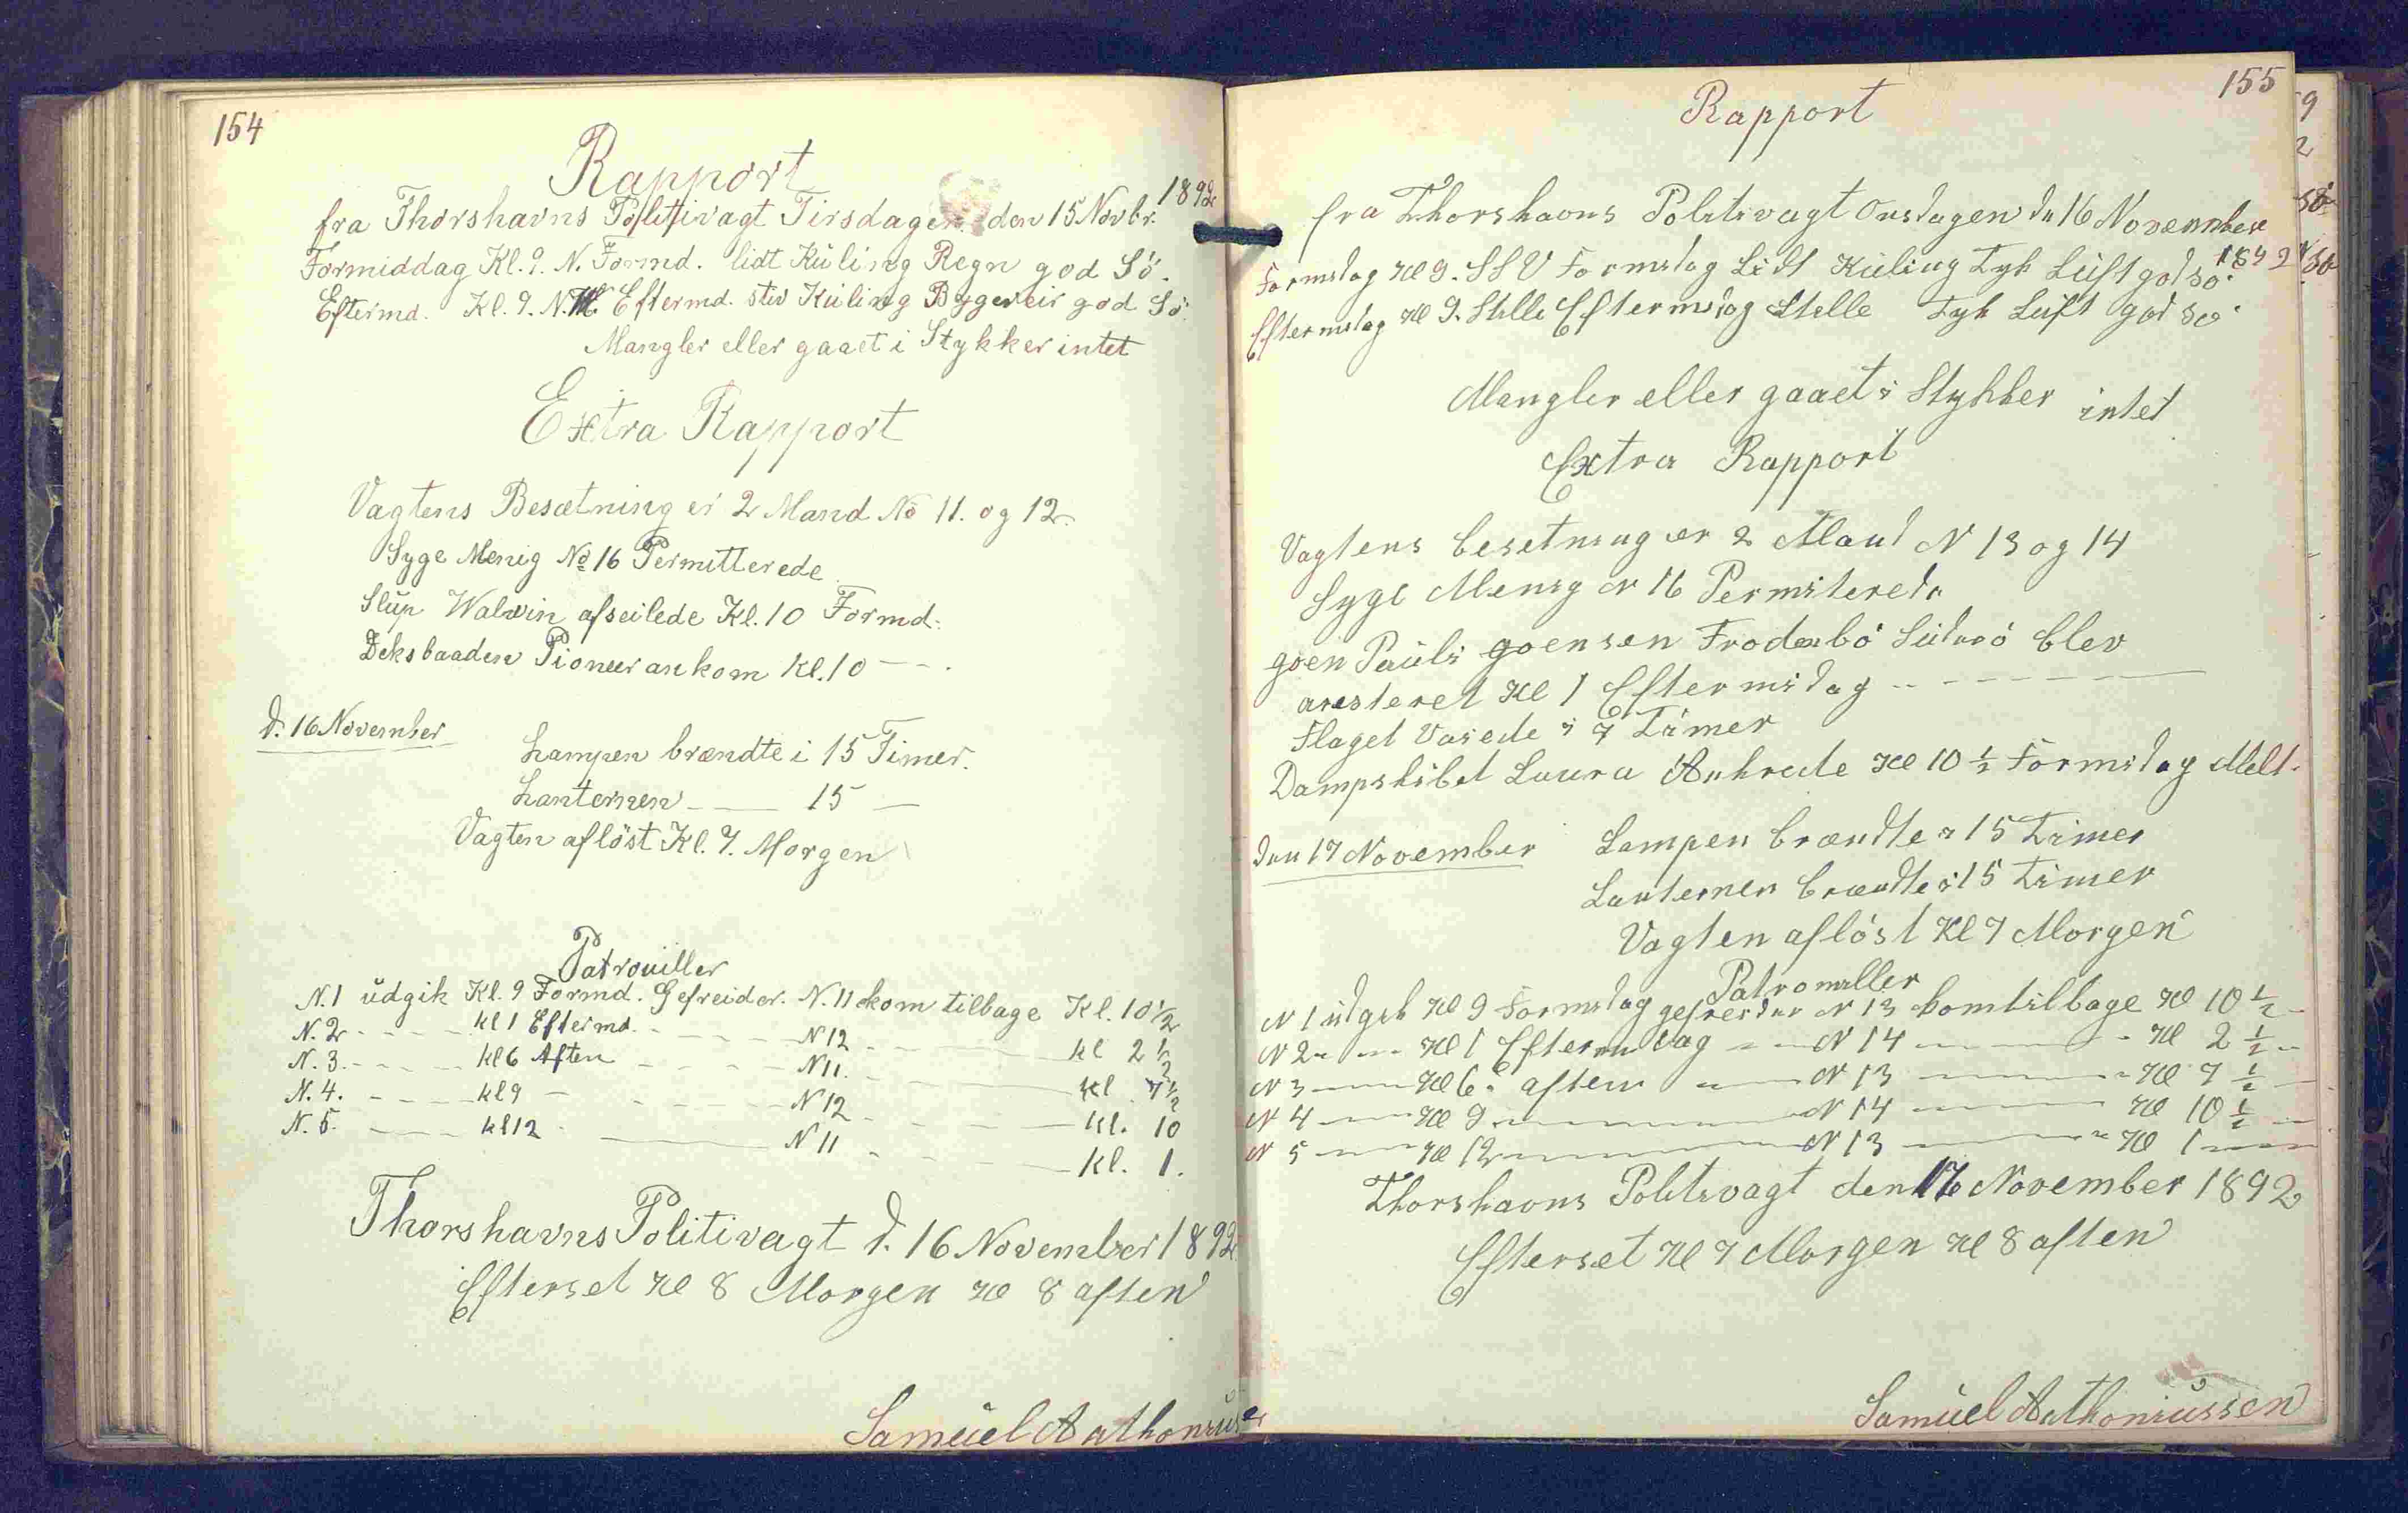 154
Rapport
fra Thorshavns Politivagt Tirsdagen den 15 Novbr. 1892
Formiddag Kl. 9. N. Formd. lidt Kuling Regn god Sö.
Eftermd. Kl. 9. N. Eftermd. stiv Kuling Bygeveir god Sö.
Mangler eller gaaet i Stykker intet
Extra Rapport
Vagtens Besætning er 2 Mand No 11. og 12.
Syge Menig No 16 Permitterede
Slup Walvin afseilede Kl. 10 Formd.
Deksbaaden Pioneer ankom Kl. 10 — - .
d. 16 November
Lampen brændte i 15 Timer.
Lanternen — — 15 —
Vagten aflöst Kl. 7. Morgen
Patrouiller
N. 1 udgik Kl. 9 Formd. Gefreider. N. 11 kom tilbage Kl. 10 1/2
N. 2 - - - - Kl 1 Eftermd. - - - N 12 - - - Kl 2 1/2
N. 3. - - - - Kl 6 Aften - - - N 11. - - - Kl 7 1/2
N. 4. - - - Kl 9 — - - - N 12 - - - Kl. 10
N. 5. — — Kl 12 - — — N 11 - - - Kl. 1.
Thorshavns Politivagt d. 16 November 1892
Efterset Kl 8 Morgen Kl 8 aften
Samuel Anthoniusen
155
Rapport
fra Thorshavns Politivagt Onsdagen dn 16 November
1892
Formidag Kl 9. SSV Formidag Lidt Kuling Tyk Luft god sö.
Eftermidag Kl 9. Stille Eftermidag Stille Tyk Luft god sö.
Mangler eller gaaet i Stykker intet
Extra Rapport
Vagtens besetning er 2 Mand N 13 og 14
Syge Menig N 16 Permiterede
goen Pauli goensen Froderbö Suderö blev
aresteret Kl 1 Eftermidag - - - - - - -
Flaget Vaiede i 7 Timer
Dampskibet Laura Ankrede Kl 10 1/2 Formidag Melt.
den 17 November
Lampen brændte i 15 Timer
Lanternen brændte i 15 Timer
Vagten aflöst Kl 7 Morgen
Patromiller
N 1 udgik Kl 9 Formidag gefreider N 13 komtilbage Kl 10 1/2 -
N 2 - - - Kl 1 Eftermidag - - N 14 — — - Kl 2 1/2 -
N 3 — — Kl 6 aften — — N 13 — — - Kl 7 1/2 —
N 4 — — Kl 9 — — — N 14 — — Kl 10 1/2 —
N 5 — — Kl 12 — — — N 13 — — Kl 1 —
Thorshavns Politivagt den 17 November 1892
Efterset Kl 7 Morgen Kl 8 aften
Samuel Anthoniussen